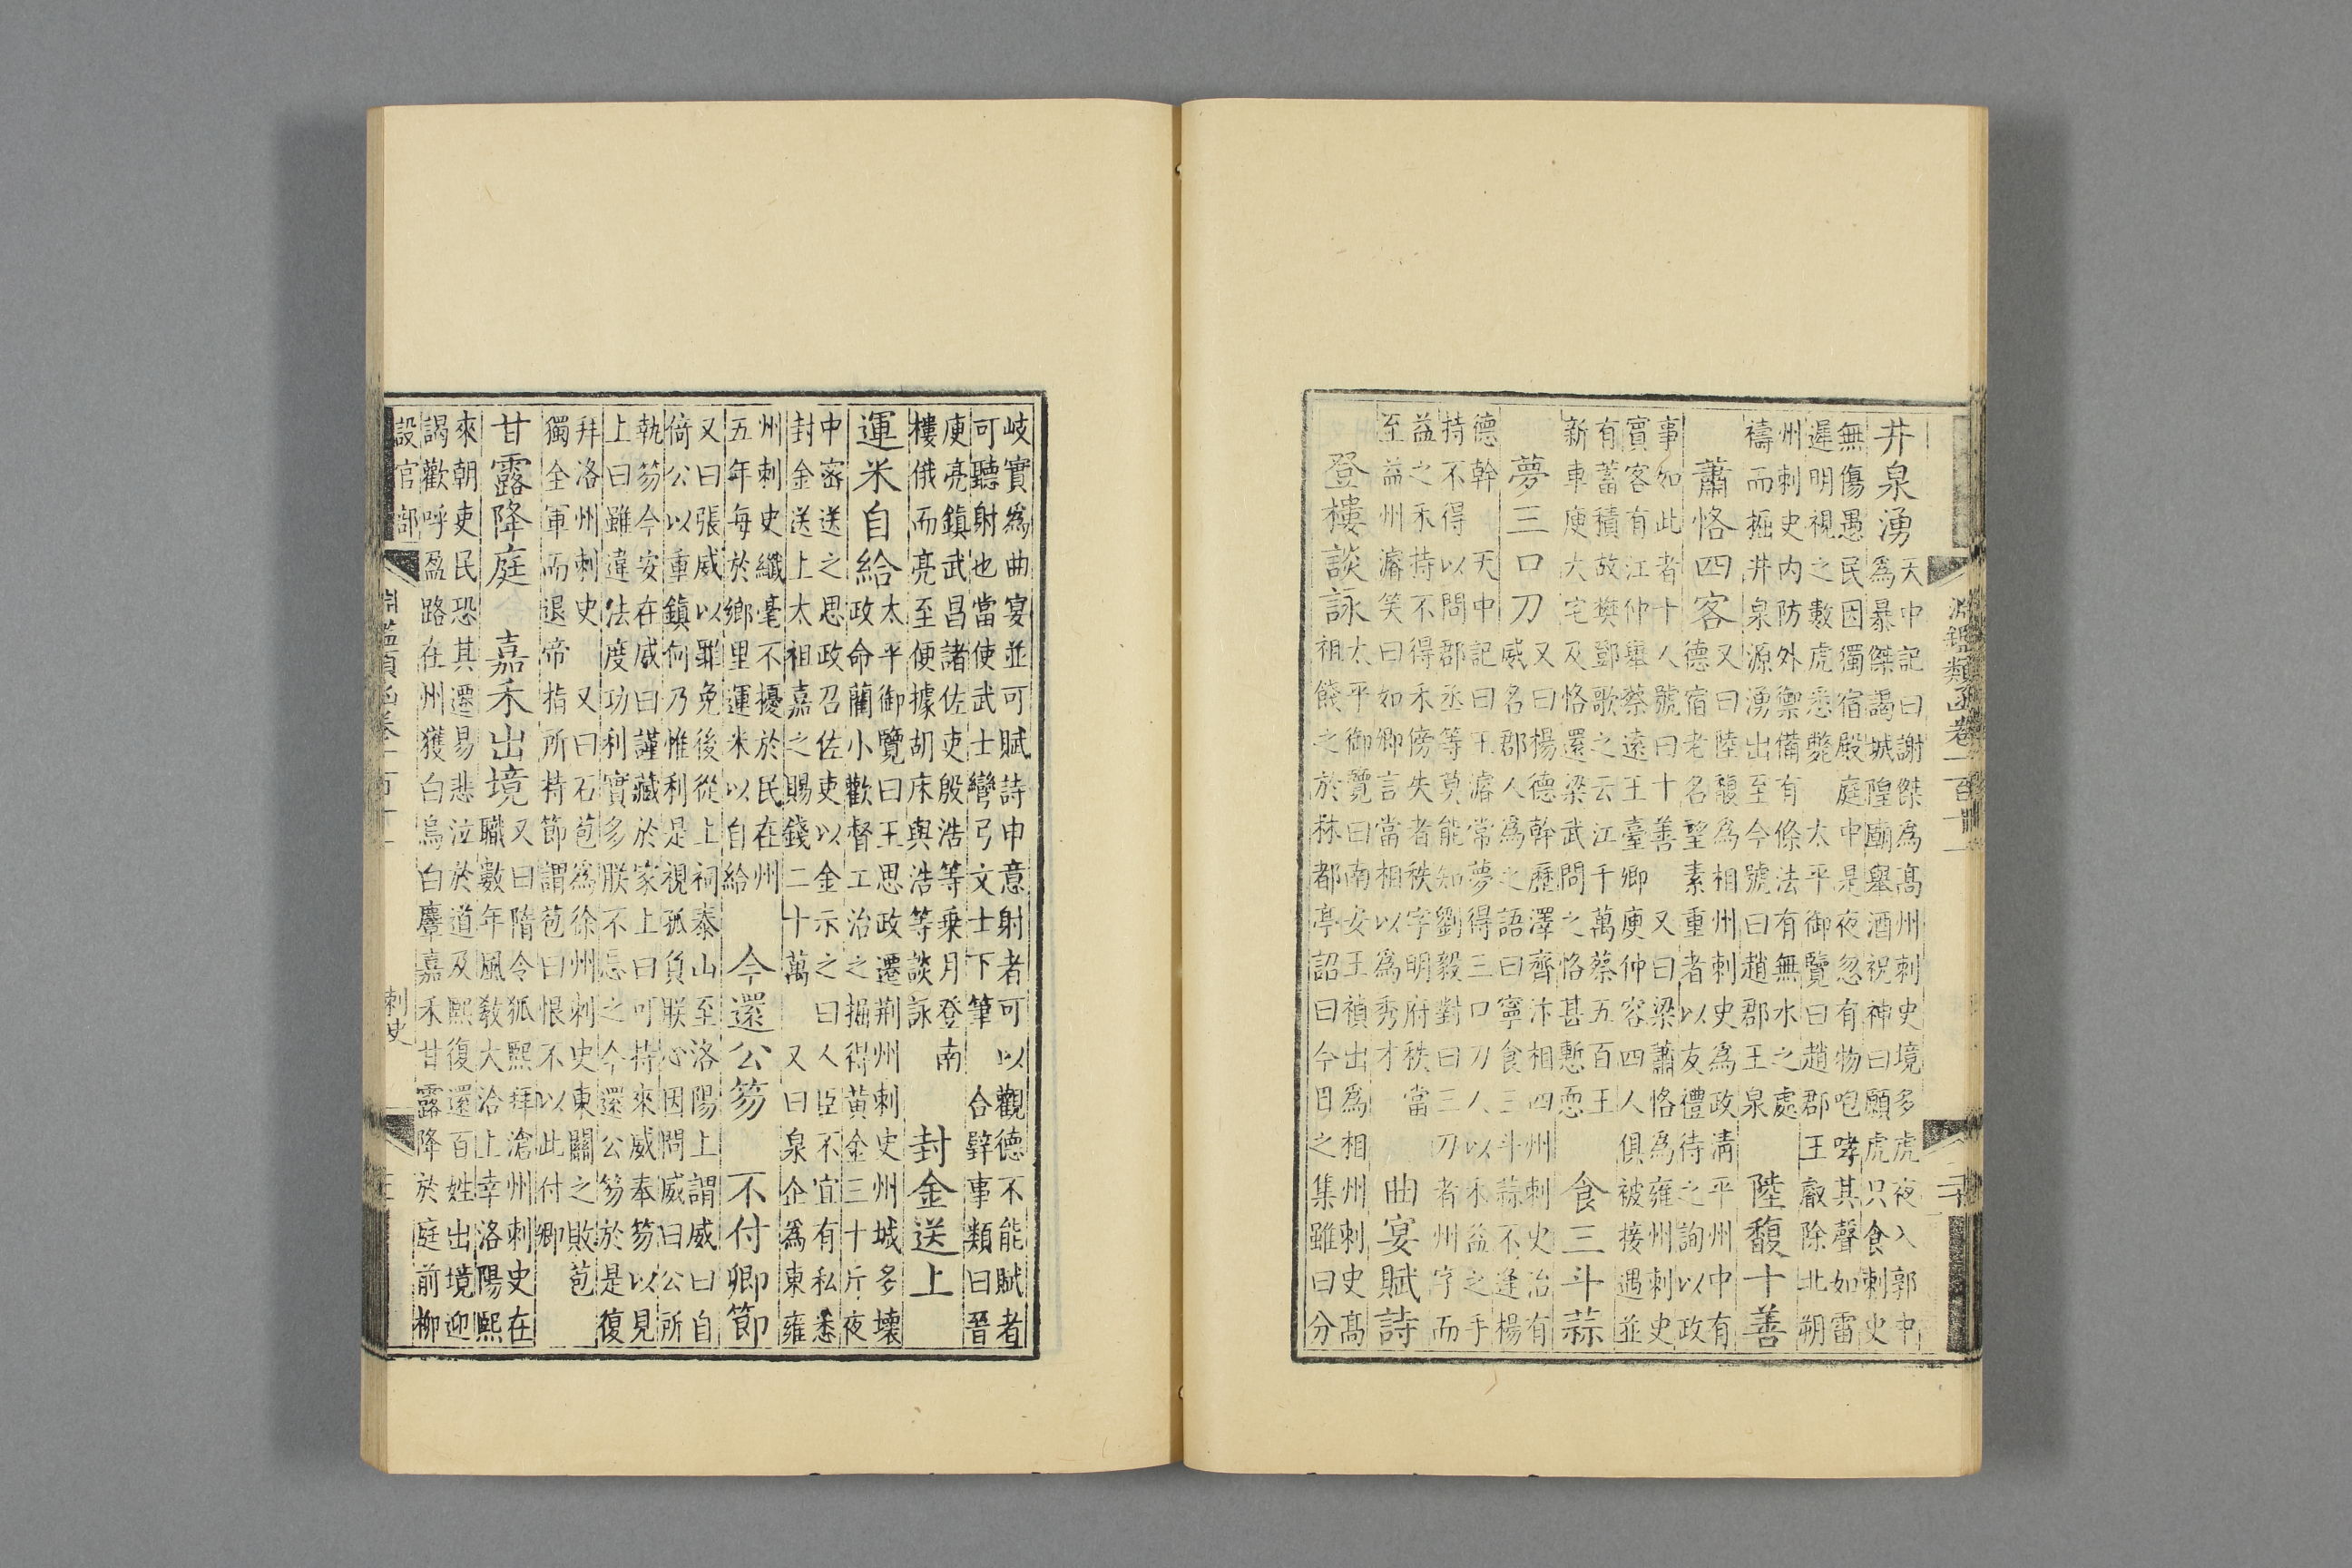 淵鑑類函卷一百十一
二十
井泉湧
天中記曰謝傑爲高州刺史境多虎夜入郭中
爲暴傑謁城隍廟舉酒祝神曰願虎只食刺史
無傷愚民因獨宿殿庭中是夜忽有物咆哮其聲如雷
遲明視之數虎悉斃 太平御覽曰趙郡王叡除北朔
州刺史内防外禦備有條法有無水之處
禱而掘井泉源湧出至今號曰趙郡王泉
陸馥十善
蕭恪四客
又曰陸馥爲相州刺史爲政清平州中有
德宿老名望素重者以友禮待之詢以政
事如此者十人號曰十善 又曰梁蕭恪爲雍州刺史
賓客有江仲舉蔡遠王臺卿庾仲容四人俱被接遇並
有蓄積故樊鄧歌之云江千萬蔡五百王
新車庾大宅及恪還梁武問之恪甚慙恧
食三斗蒜
夢三口刀
又曰楊德幹歷澤齊汴相四州刺史治有
威名郡人爲之語曰寧食三斗蒜不逢楊
德幹 天中記曰王濬常夢得三口刀人以禾益之手
持不得以問郡丞等莫能知劉毅對曰三刀者州字而
益之禾持不得禾傍失者秩字明府秩當
至益州濬笑曰如卿言當相以爲秀才
曲宴賦詩
登樓談詠
太平御覽曰南安王禎出爲相州刺史高
祖餞之於林都亭詔曰今日之集雖曰分
岐實爲曲宴並可賦詩申意射者可以觀德不能賦者
可聽射也當使武士彎弓文士下筆 合璧事類曰晉
庾亮鎮武昌諸佐吏殷浩等乘月登南
樓俄而亮至便據胡床與浩等談詠
封金送上
運米自給
太平御覽曰王思政遷荆州刺史州城多壞
政命藺小歡督工治之掘得黃金三十斤夜
中密送之思政召佐吏以金示之曰人臣不宜有私悉
封金送上太祖嘉之賜錢二十萬 又曰泉企爲東雍
州刺史纖毫不擾於民在州
五年每於鄉里運米以自給
今還公笏 不付卿節
又曰張威以罪免後從上祠泰山至洛陽上謂威曰自
倚公以重鎮何乃惟利是視孤負朕心因問威曰公所
執笏今安在威曰謹藏於家上曰可持來威奉笏以見
上曰雖違法度功利實多朕不忘之今還公笏於是復
拜洛州刺史 又曰石苞爲徐州刺史東關之敗苞
獨全軍而退帝指所持節謂苞曰恨不以此付卿
甘露降庭 嘉禾出境
又曰隋令狐熙拜滄州刺史在
職數年風教大洽上幸洛陽熙
來朝吏民恐其遷易悲泣於道及熙復還百姓出境迎
謁歡呼盈路在州獲白烏白麞嘉禾甘露降於庭前柳
設官部
淵鑑類函卷一百十一
刺史